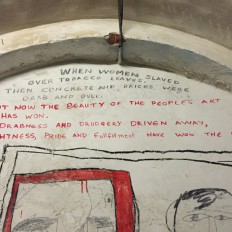 WHEN WOMEN SLAVED
OVER TOBACCO LEAVES.
THEN CONCRETE AND BRICKS WERE
DRAB AND DULL.
UT NOW THE BEAUTY OF THE PEOPLE'S ART
HAS WON.
DRABNESS AND DRUDGERY DRIVEN AWAY,
HTNESS, PRIDE AND FULFILLMENT HAVE WON THE